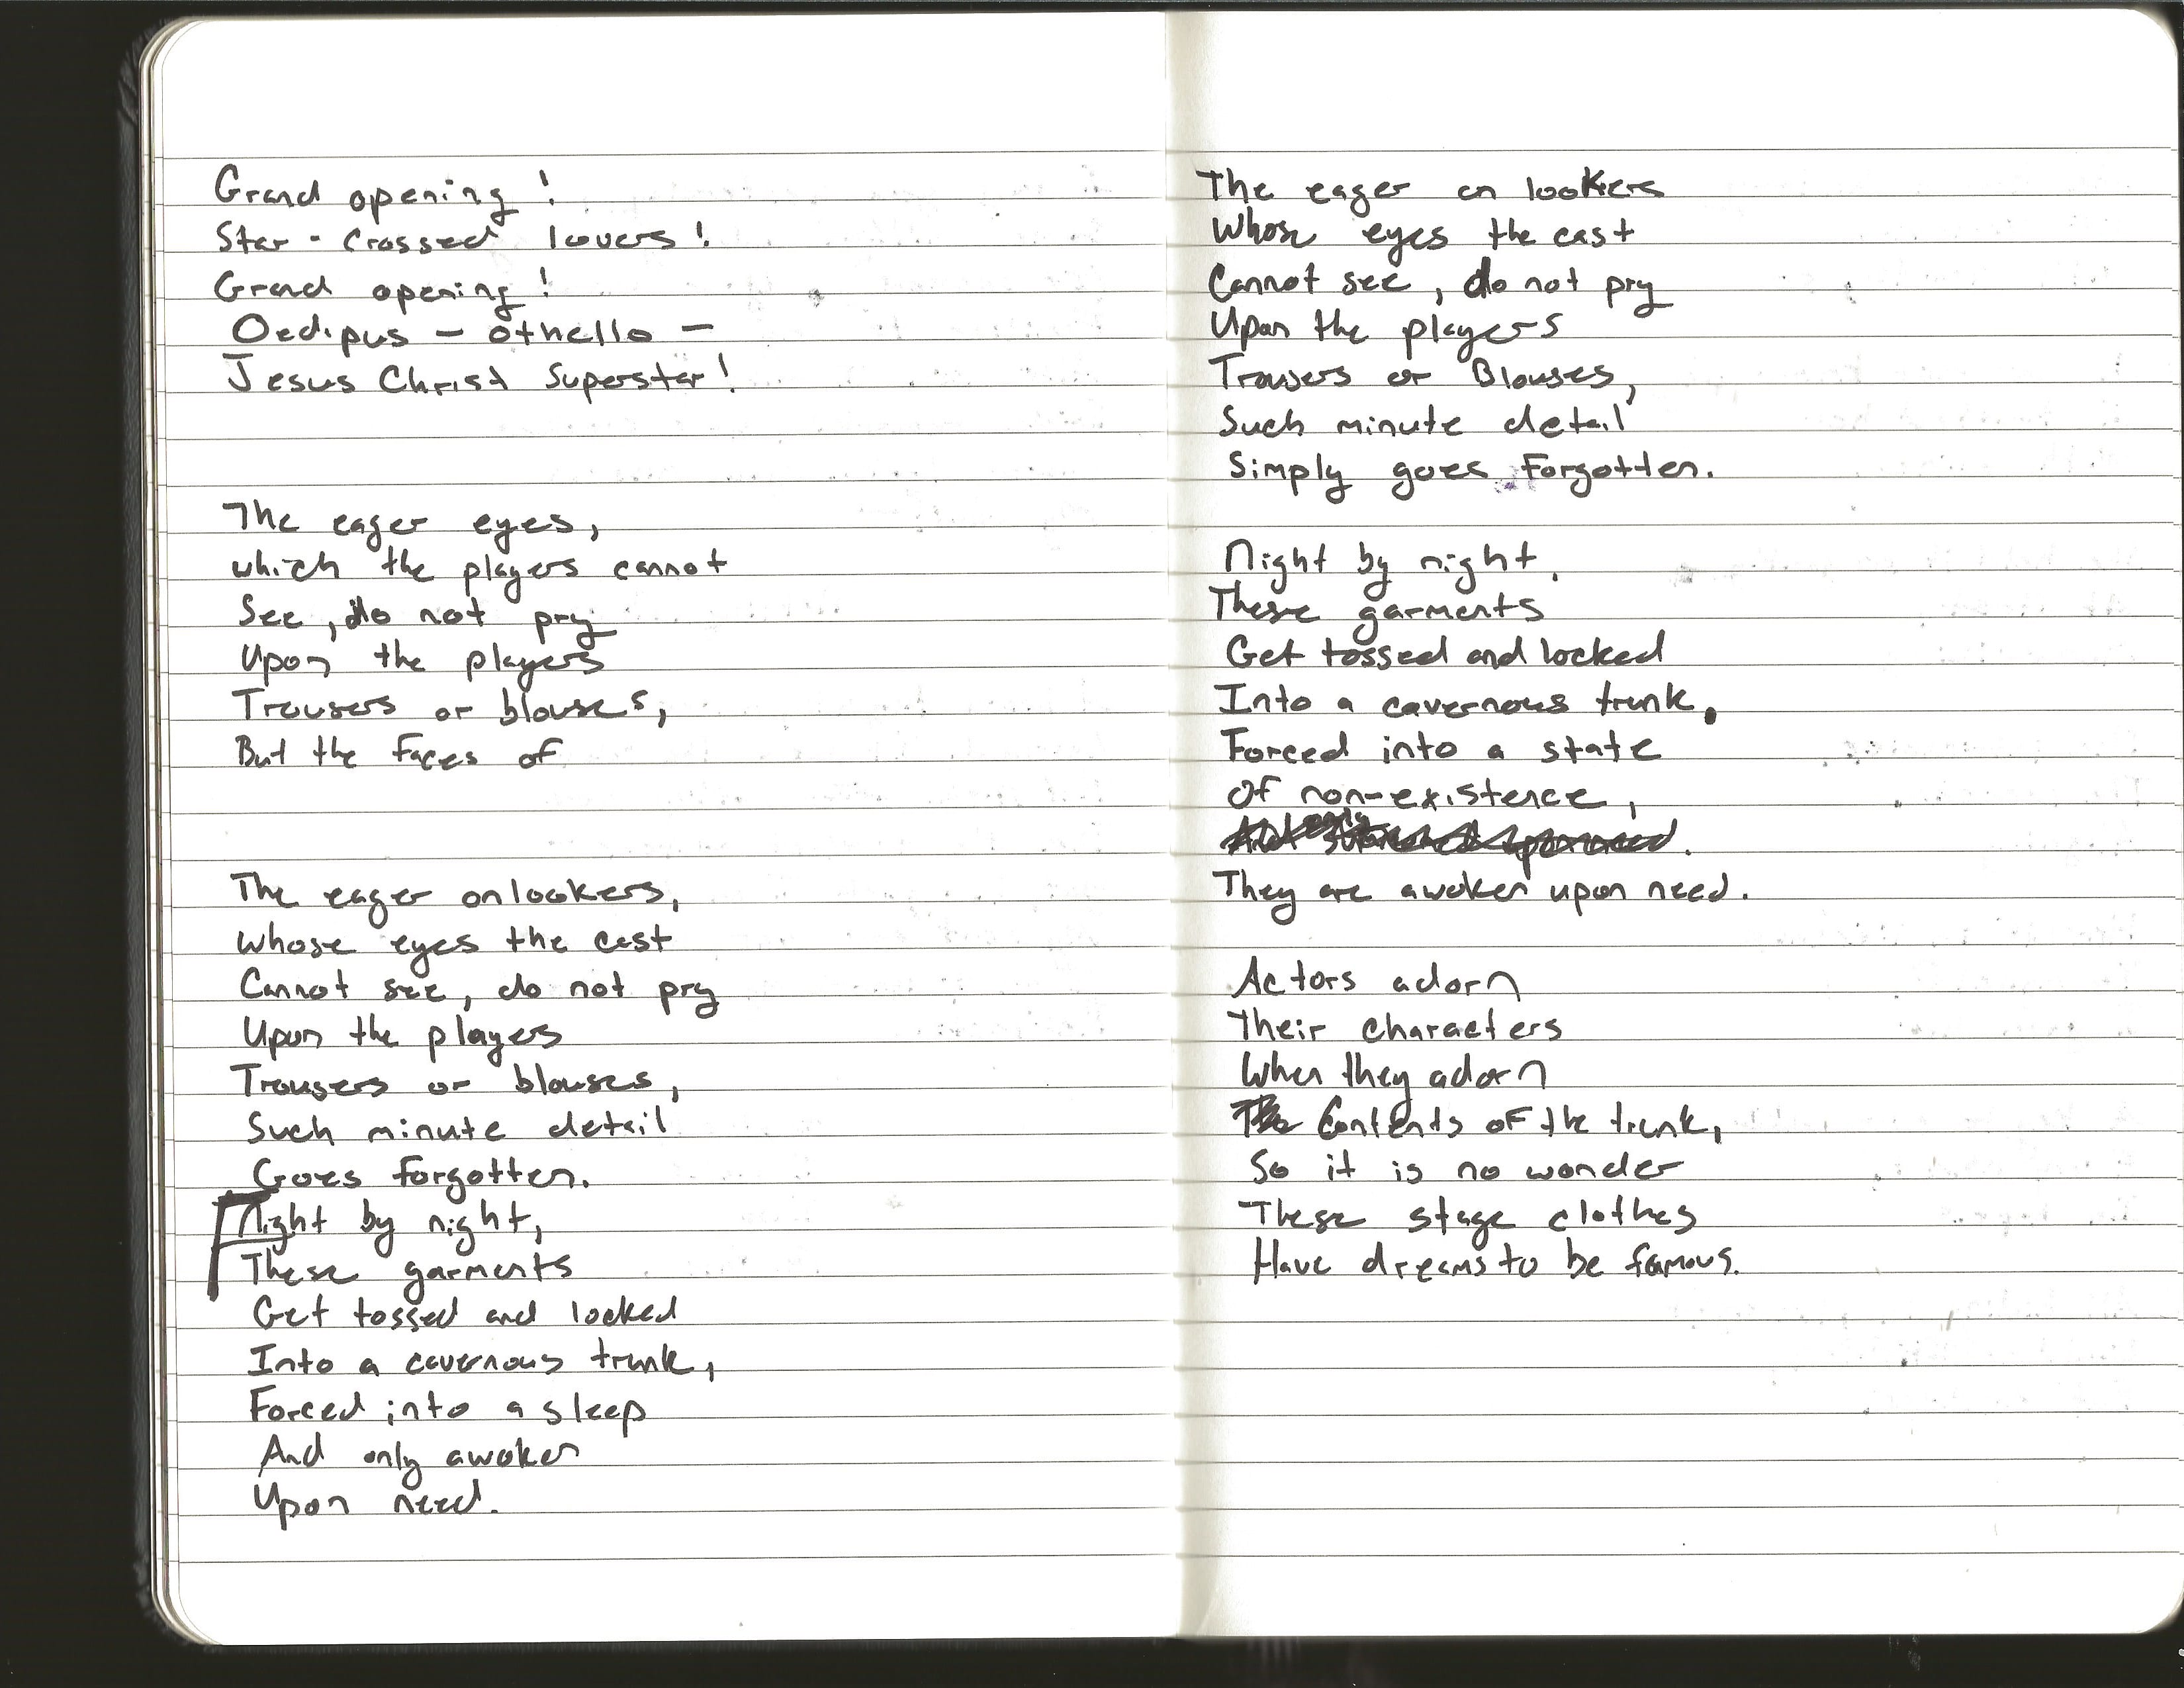 Grand opening!
Star-crossed lovers!
Grand opening!
Oedipus - Othello -
Jesus Christ Superstar!
The eager eyes,
which the players cannot
See, do not pry
Upon the players
Trousers or blouses,
But the faces of
The eager onlookers,
Whose eyes the cast
Cannot see, do not pry
Upon the players
Trousers or blouses,
Such minute detail
Goes forgotten.
Night by night,
These garments
Get tossed and locked
Into a cavernous trunk,
Forced into a sleep
And only awoken
Upon need.
The eager on lookers
Whose eyes the cast
Cannot see, do not pry
Upon the players
Trousers or Blouses,
Such minute detail
Simply goes Forgotten.
Night by night,
These garments
Get tossed and locked
Into a cavernous trunk,
Forced into a state
Of non-existence,
They are awoken upon need.
Actors adorn
Their characters
When they adorn
Contents of the trunk,
So it is no wonder
These stage clothes
Have dreams to be famous.